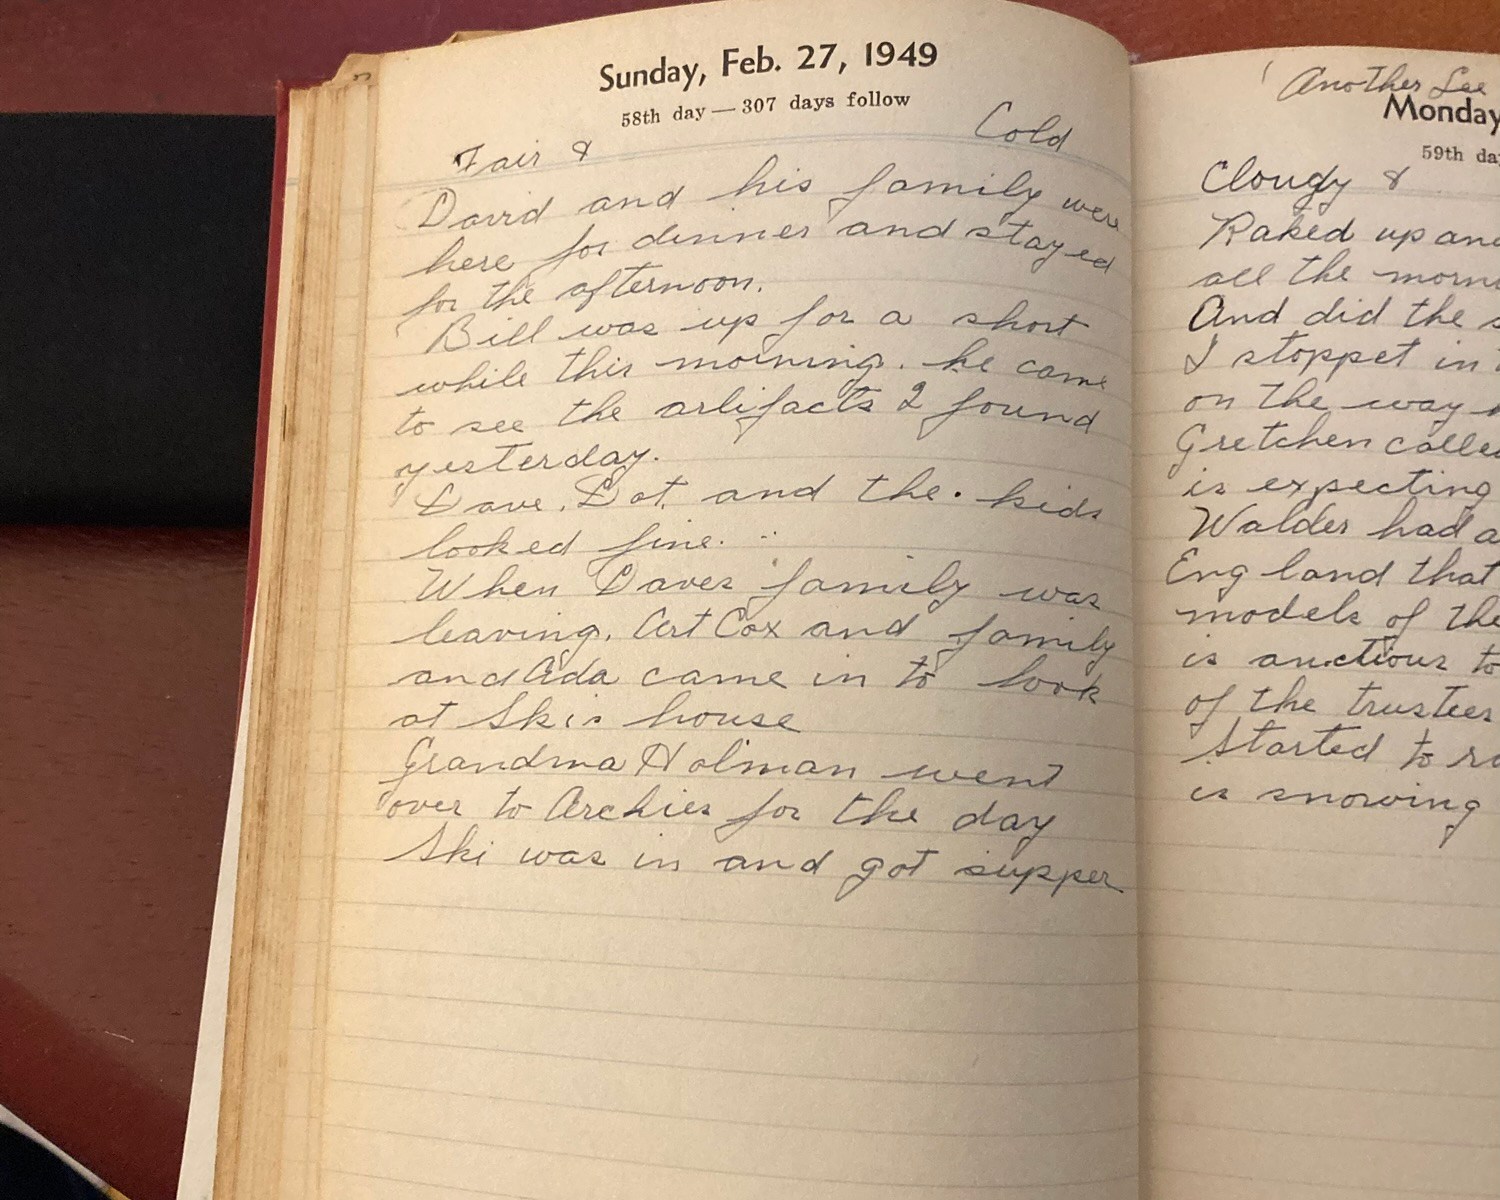 Sunday, Feb. 27, 1949
58th day — 307 days follow
Fair & Cold
David and his family were
here for dinner and stayed
for the afternoon.
Bill was up for a short
while this morning. he came
to see the artifacts I found
yesterday.
Dave, Dot, and the kids
looked fine.
When Daves family was
leaving, Art Cox and family
and Ada came in to look
at Skis house
Grandma Holman went
over to Archies for the day
Ski was in and got supper
Another See
Monday
59th da
Cloudy &
Raked up and
all the morni
And did the s
I stoppet in
on the way
Gretchen calle
is expecting
Walder had a
England that
models of the
is anctious to
of the trustees
Started to
is snowing